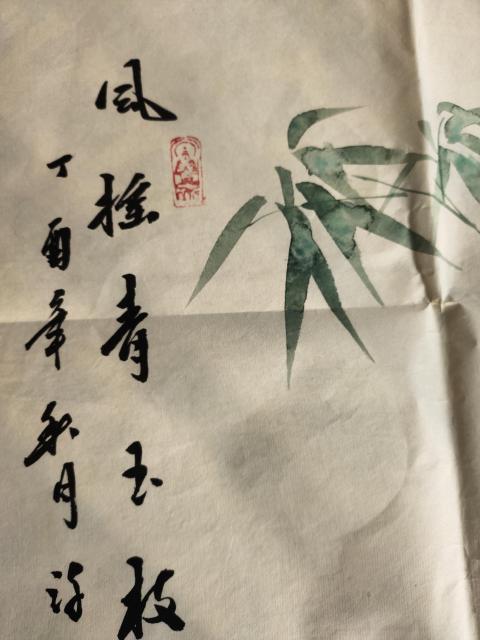 风摇青玉枝
丁酉年秋月